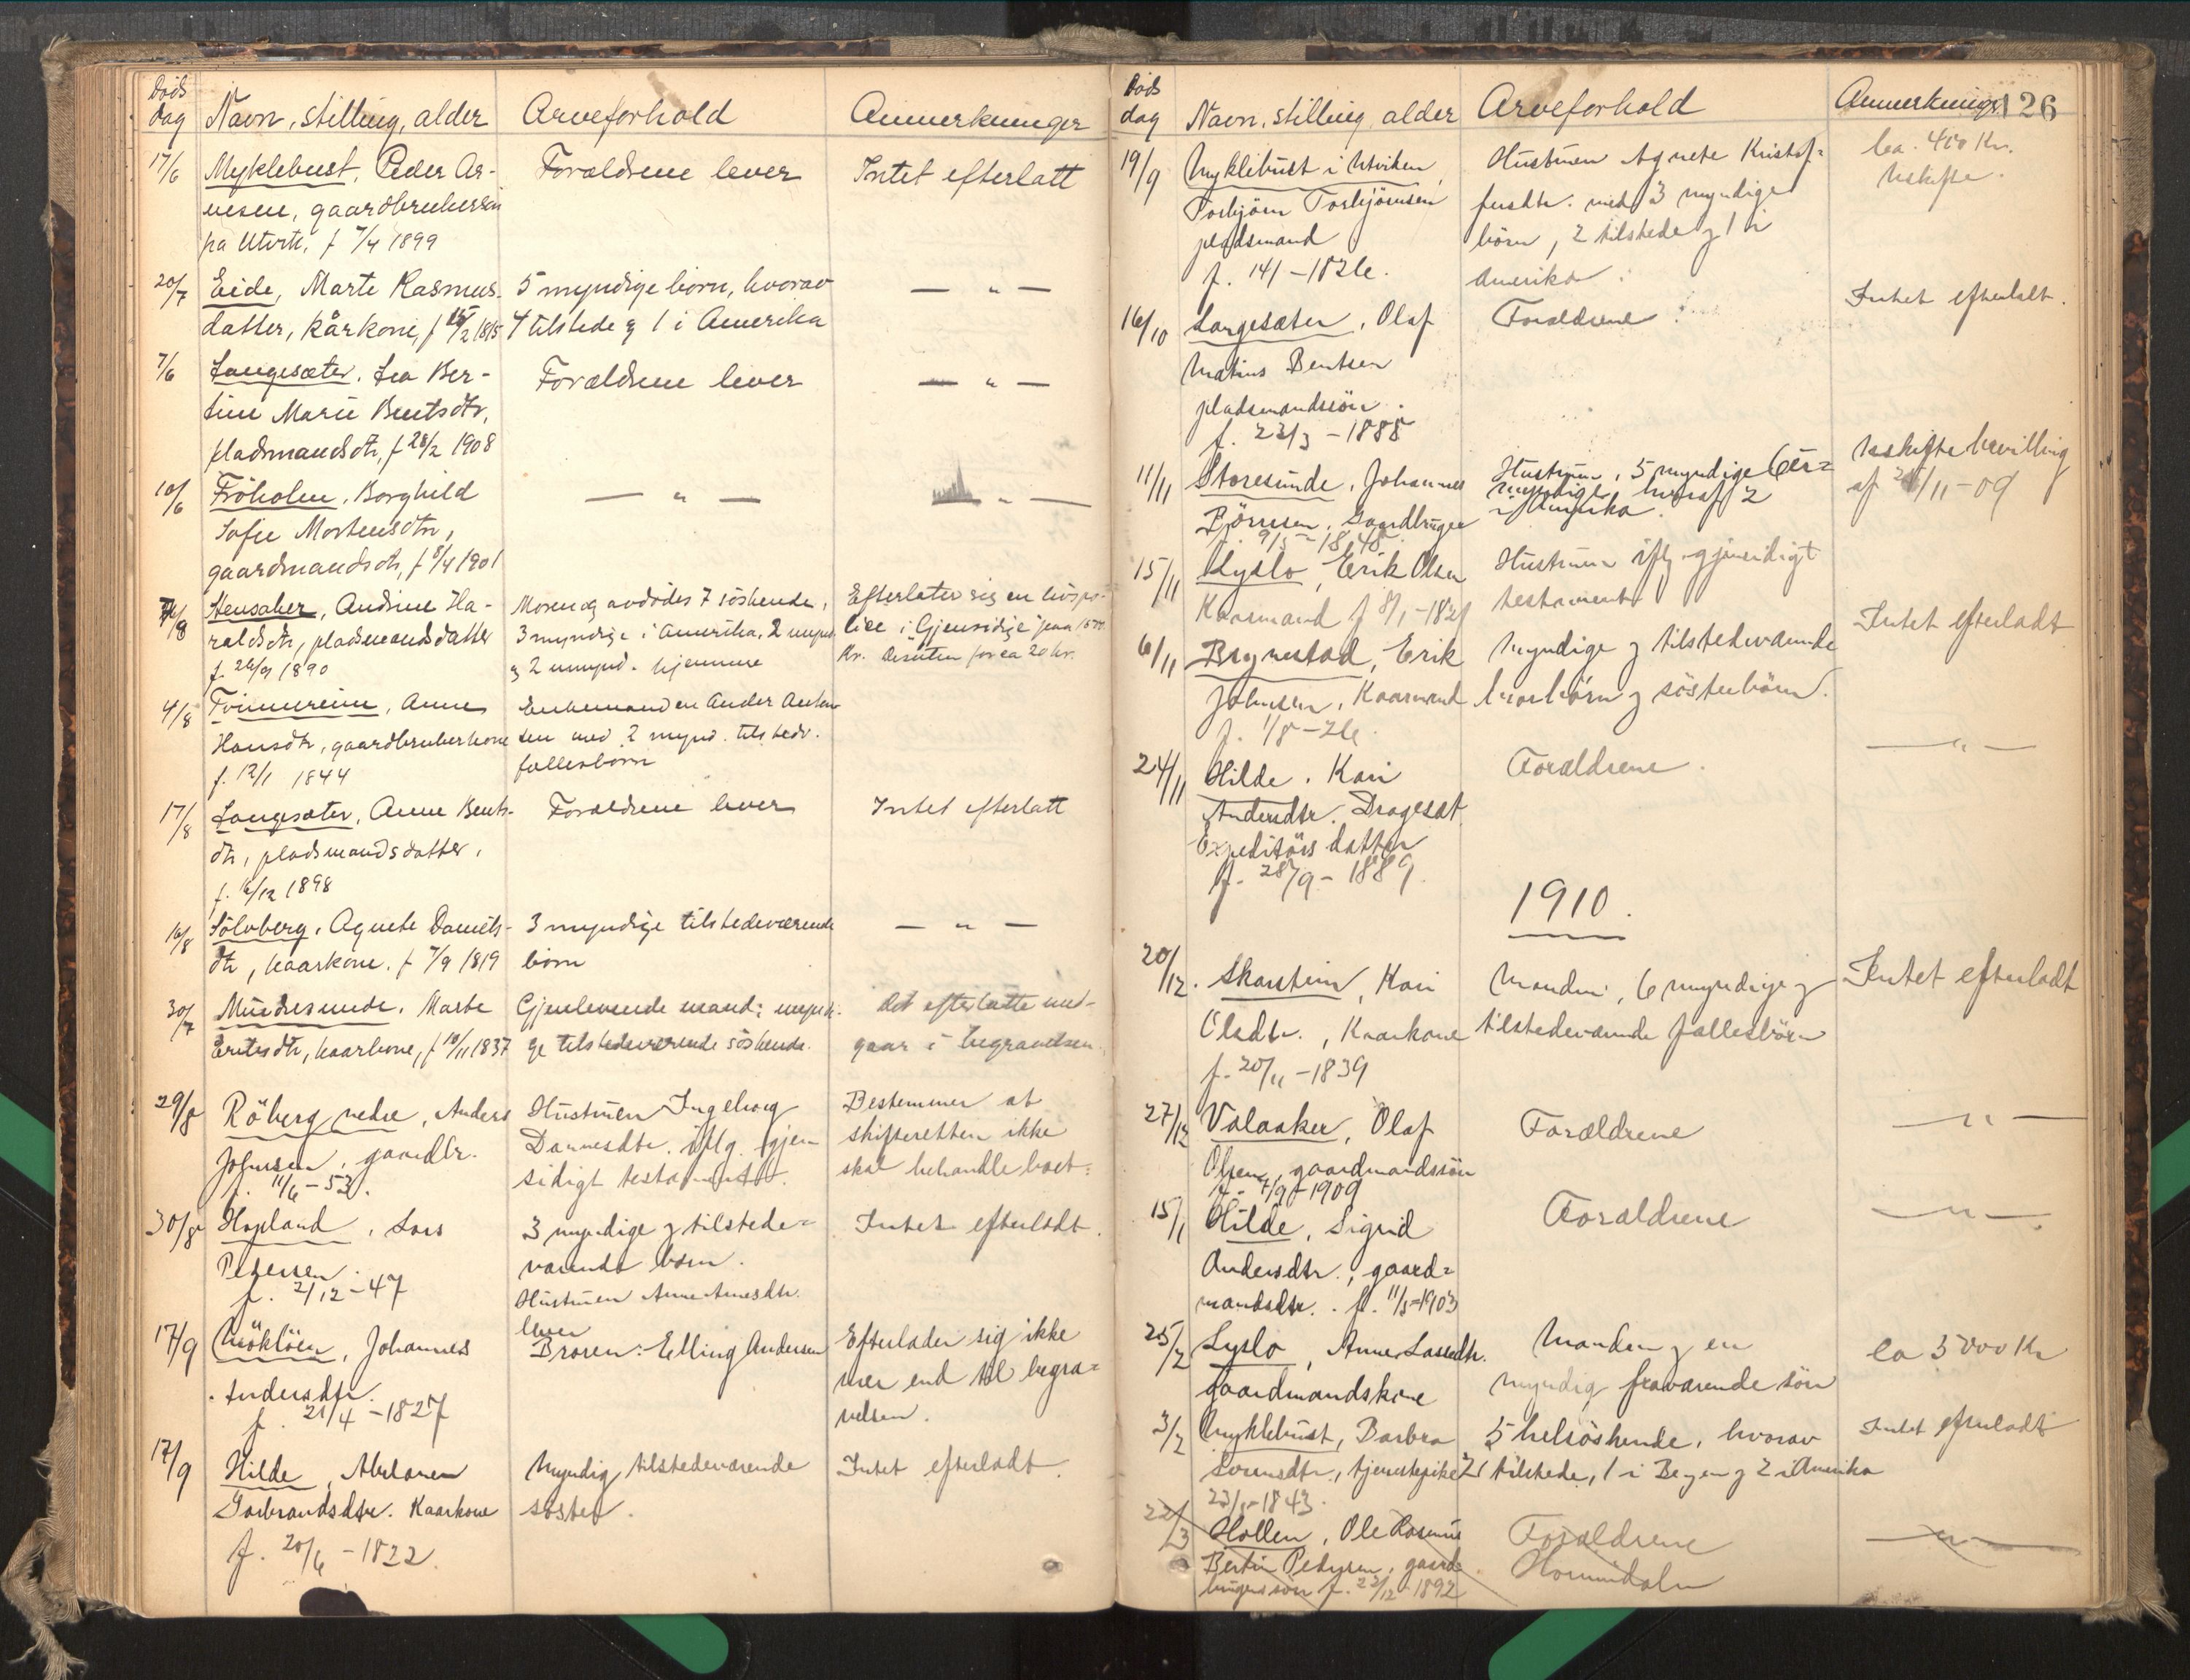 Døds
dag
Navn, stilling, alder
Arveforhold
Anmerkninger
17/6
Myklebust, Peder Ar-
nesen, gaardbrukersøn
pa Utvik, f 7/4 1899
Forældrene lever
Intet efterlatt
20/7
Eide, Marte Rasmus-
datter, kårkone, f 15/2 1815
5 myndige børn, hvorav
4 tilstede og 1 i Amerika
— " —
7/6
Langesæter, Lea Ber-
tine Marie Bentsdtr,
pladsmandsdtr, f 28/2 1908
Forældrene lever
— " —
10/6
Fröholm, Borghild
Sofie Mortensdtr,
gaardmandsdtr, f 8/4 1901
— " —
— " —
/8
Stensaker, Andrine Ha-
raldsdtr, pladsmandsdatter
f. 26/9 1890
Moren og avdødes 7 söskende,
3 myndige i Amerika, 2 mynd.
og 2 umynd. hjemme
Efterlater sig en livspo-
lice i "Gjensidige" paa
Kr. desuten for ca 20 kr.
4/8
Tvinnereim, Anne
Hansdtr, gaardbrukerkone
f. 12/1 1844
Enkemanden Ander Anton
sen med 2 mynd. tilstedv.
fællesbörn
17/8
Langesæter, Anne Bents-
dtr, pladsmandsdatter,
f. 16/12 1898
Forældrene lever
Intet efterlatt
16/8
Sölvberg, Agnete Daniels-
dtr, kaarkone. f 7/9 1819
3 myndige tilstedeværende
börn
— " —
30/7
Mindresunde, Marte
Eriksdtr, kaarkone, f 10/11 1837
Gjenlevende mand; myndi-
ge tilstedeværende söskende.
Det efterlatte ind-
gaar i begravelsen.
29/8
Röberg nedre, Anders
Johnsen, gaardbr.
f. 11/6 - 53.
Hustruen Ingeborg
Dannesdtr. iflg. gjen-
sidigt testament.
Bestemmer at
skifteretten ikke
skal behandle boet.
30/8
Hopland, Lars
Petersen.
f. 2/12 - 47
3 myndige og tilstede=
værende børn.
Hustruen Anne Arnesdtr.
lever
Intet efterladt.
17/9
Möklöen, Johannes
Andersdtr.
f. 21/4 - 1827
Broren: Elling Andersen
Efterlader sig ikke
mer end til begra=
velsen.
17/9
Hilde, Abelonen
Gorbrandsdtr. Kaarkone
f. 20/6 - 1822.
Myndig, tilstedeværende
söster.
Intet efterladt.
Døds
dag
Navn, stilling, alder
Arveforhold
Anmerkninger
126
19/9
Myklebust i Utviken,
Torbjörn Torbjörnsen
pladsmand
f. 14/1 - 1826.
Hustruen Agnete Kristof=
fersdtr. med 3 myndige
börn, 2 tilstede og 1 i
Amerika.
Ca. 400 Kr.
Uskifte.
16/10
Langesæter, Olaf
Matius Bentsen
pladsmandssön.
f. 23/3 - 1888
Forældrene
Intet efterladt.
11/11
Storesunde, Johannes
Björnsen, Gaardbruger
f. 9/5 - 1848.
Hustruen, 5 myndige 6 u=
myndige, hvoraf 2
i Amerika.
Uskiftebevilling
af /11 - 09
15/11
Lyslo, Erik Olsen
Kaarmand f 8/1 - 1821
Hustruen iflg. gjensidigt
testament.
6/11
Brynestad, Erik
Johnsen, Kaarmand
f. 1/8 - 26.
Myndige og tilstedeværende
brorbörn og søsterbörn.
Intet efterladt
24/11
Hilde, Kari
Andersdtr. Drageset.
Expeditörs datter
f. 28/9 - 1889.
Forældrene.
— " —
1910.
20/12.
Skarstein, Kari
Olsdtr., Kaarkone
f. 20/11 - 1839
Manden, 6 myndige og
tilstedeværende fællesbörn
Intet efterladt
27/12
Valaaker, Olaf
Olsen, gaardmandssön
f. 7/9 - 1909
Forældrene
— " —
15/1
Hilde, Sigrid
Andersdtr., gaard=
mandsdtr. f. 11/5 - 1903
Forældrene
— " —
25/2
Lyslo, Anne Lassedtr.
Gaardmandskone
Manden og en
myndig fraværende sön
Ca 3000 Kr
3/2
Myklebust, Barbra
Sorensdtr., tjenestepike
23/ - 1843.
5 helsöskende, hvorav
2 tilstede, 1 i Bergen og 2 i Amerika
Intet efterladt
22/3
Hollen, Ole Rasmus
Bertin Petersen, gaard
brugers sön f. 22/12 - 1892
Forældrene
Hornindalen
— " —